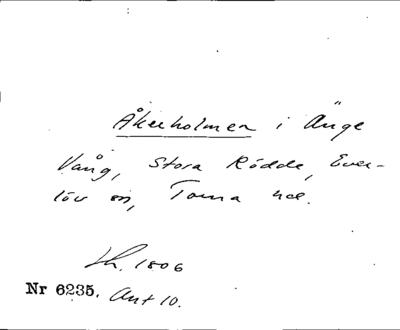 Åkerholmen i Änge
Vång, Stora Rödde, Ever-
löv sn, Torna hd.
Lh. 1806
Nr 6235. Ant 10.